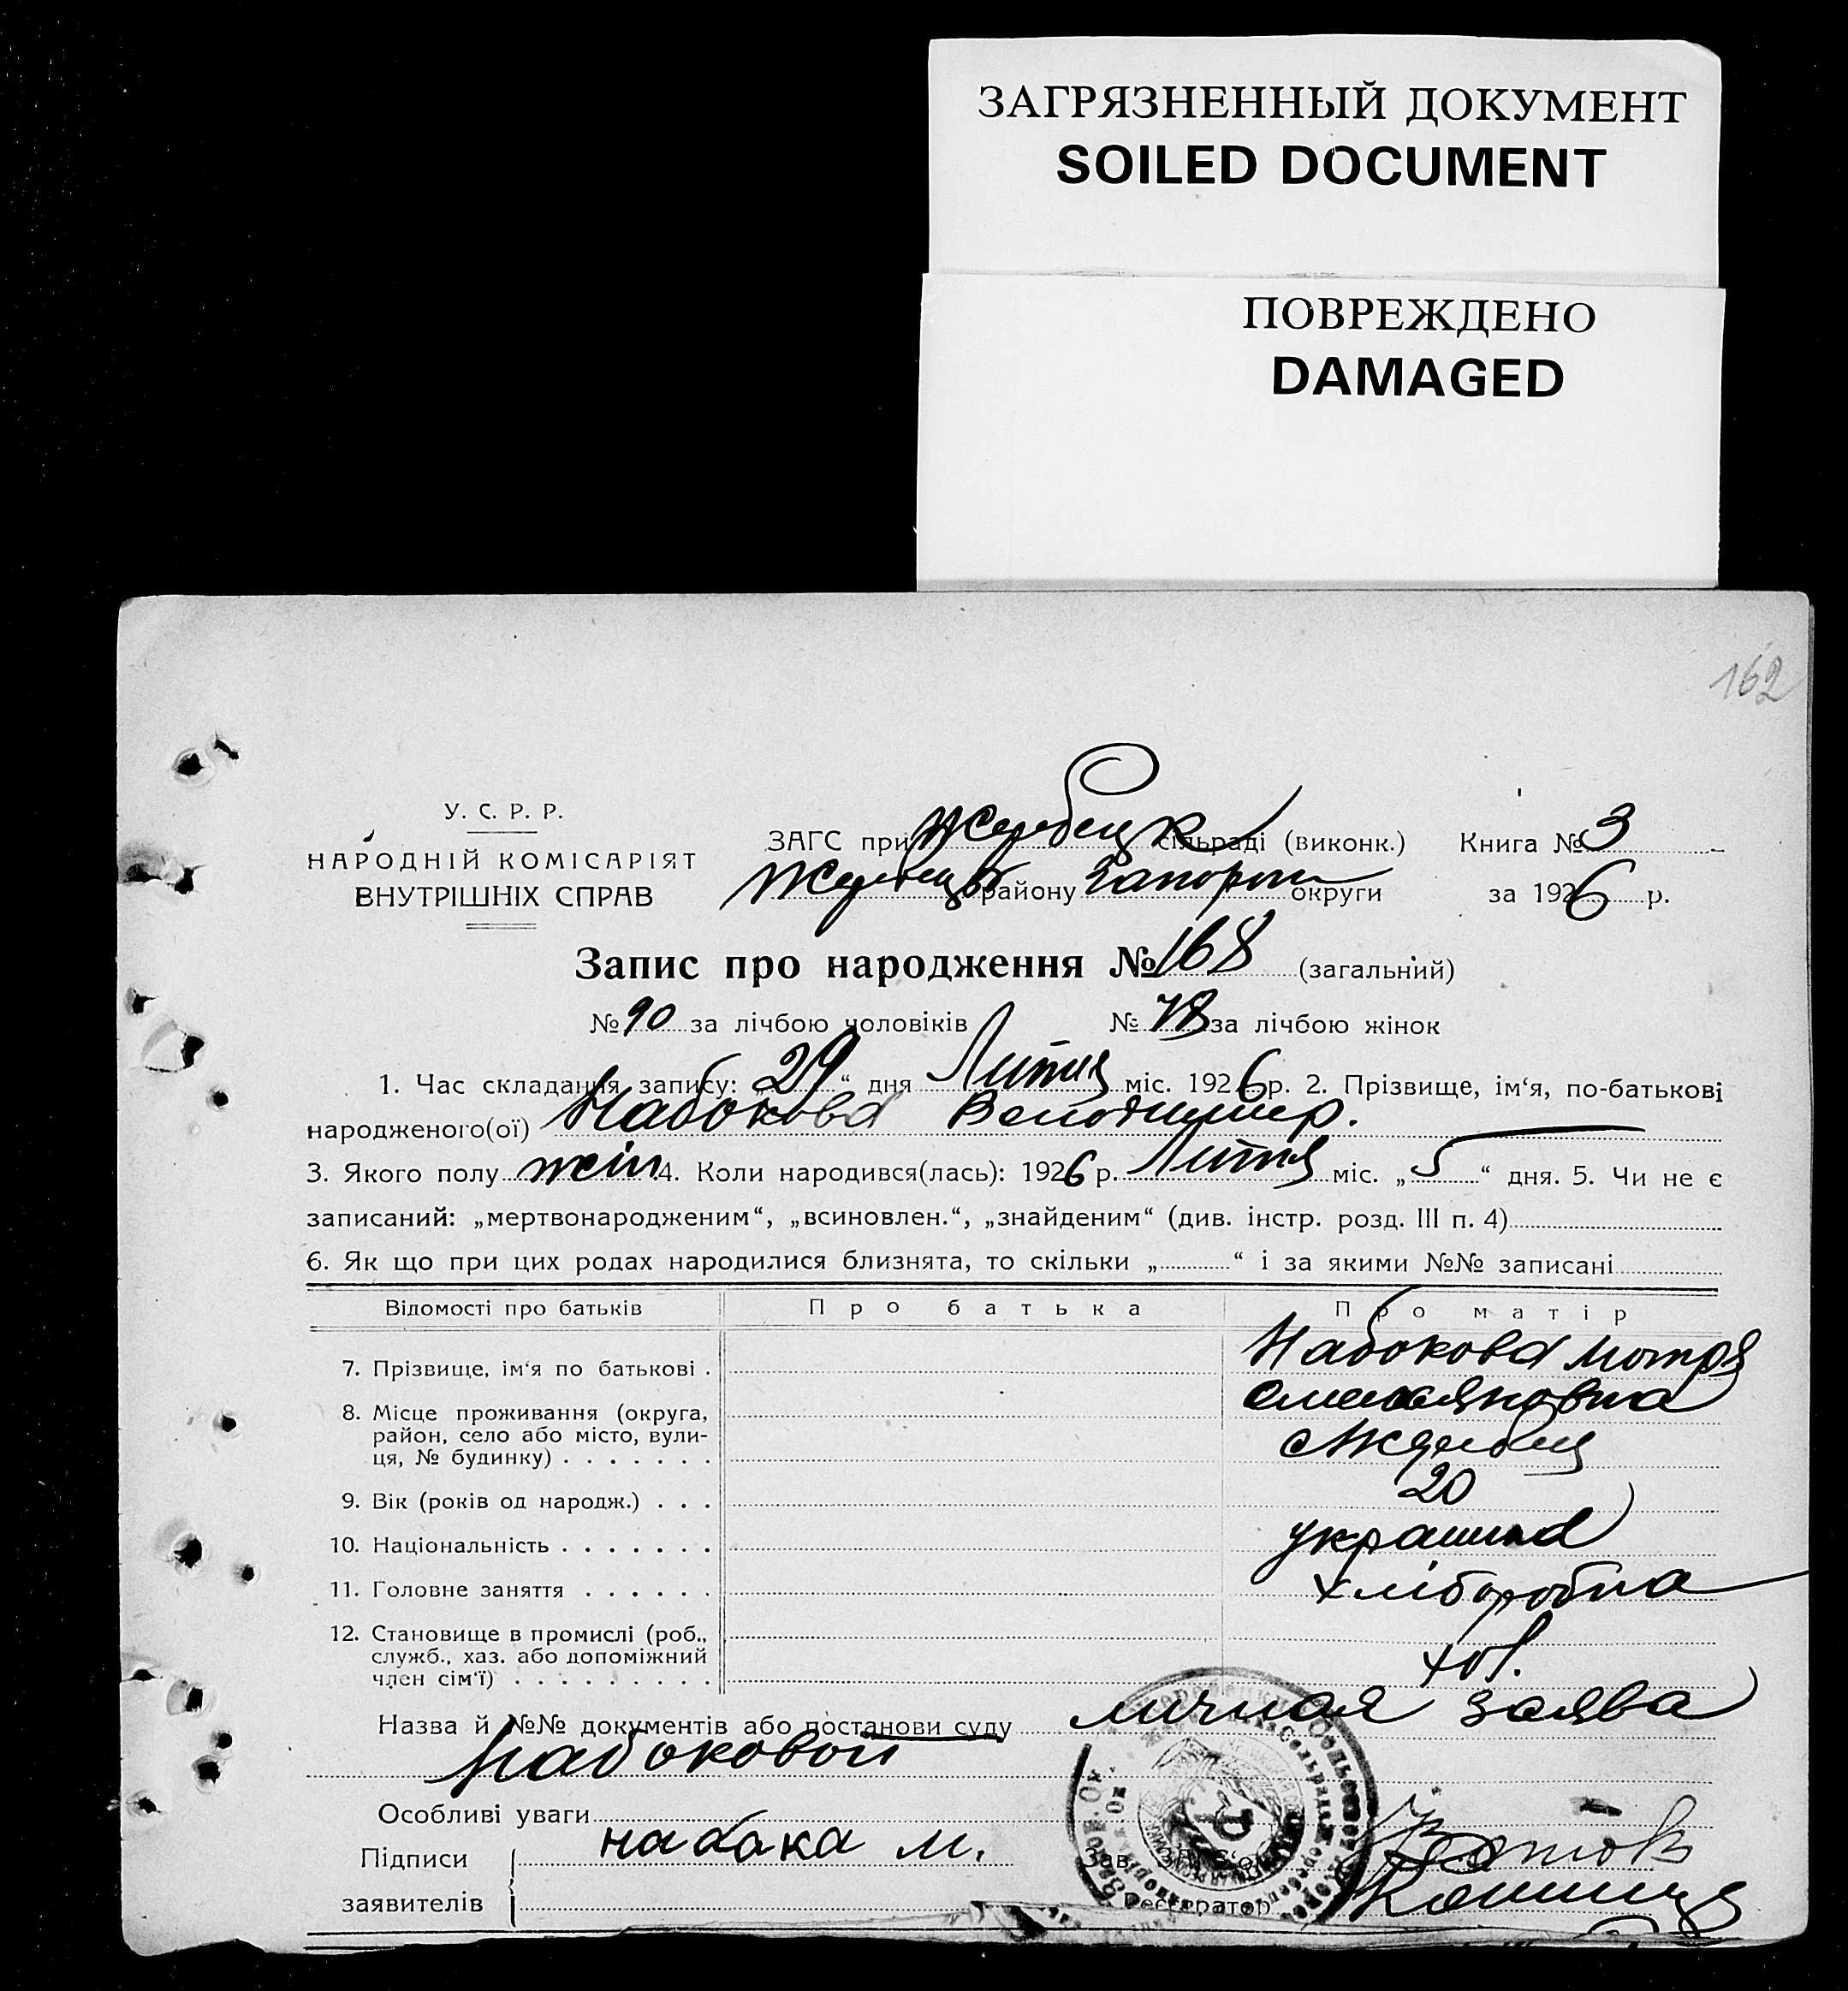 ЗАГРЯЗНЕННЫЙ ДОКУМЕНТ
SOILED DOCUMENT
ПОВРЕЖДЕНО
DAMAGED
162
У. С. Р. Р.
НАРОДНІЙ КОМІСАРІЯТ
ВНУТРІШНІХ СПРАВ
ЗАГС при Жеребецк сільраді (виконк.) Книга № 3
Жеребецк району Запорож округи за 1926 р.
Запис про народження № 168 (загальний)
№ 90 за лічбою чоловіків № 78 за лічбою жінок
1. Час складання запису: „29“ дня Липня міс. 1926 р. 2. Прізвище, ім‘я, по-батькові
народженого(ої) Набокова Володимир.
3. Якого полу жін. 4. Коли народився(лась): 1926 р. Липня міс. „5“ дня. 5. Чи не є
записаний: „мертвонародженим“, „всиновлен.“, „знайденим“ (див. інстр. розд. III п. 4)
6. Як що при цих родах народилися близнята, то скільки „ “ і за якими №№ записані
Відомості про батьків Про батька Про матір
7. Прізвище, ім‘я по батькові . Набокова Мотря
Емельяновна
8. Місце проживання (округа,
район, село або місто, вули-
ця, № будинку) . . . . . . . с Жеребец
9. Вік (років од народж.) . . . 20
10. Національність . . . . . . . україника
11. Головне заняття . . . . . . хліборобка
12. Становище в промислі (роб.,
служб., хаз. або допоміжний
член сім‘ї) . . . . . . . . .
Назва й №№ документів або постанови суду личная заява
Набоковой
Особливі уваги
Підписи набока м. Зав.
заявителів Реєстратор